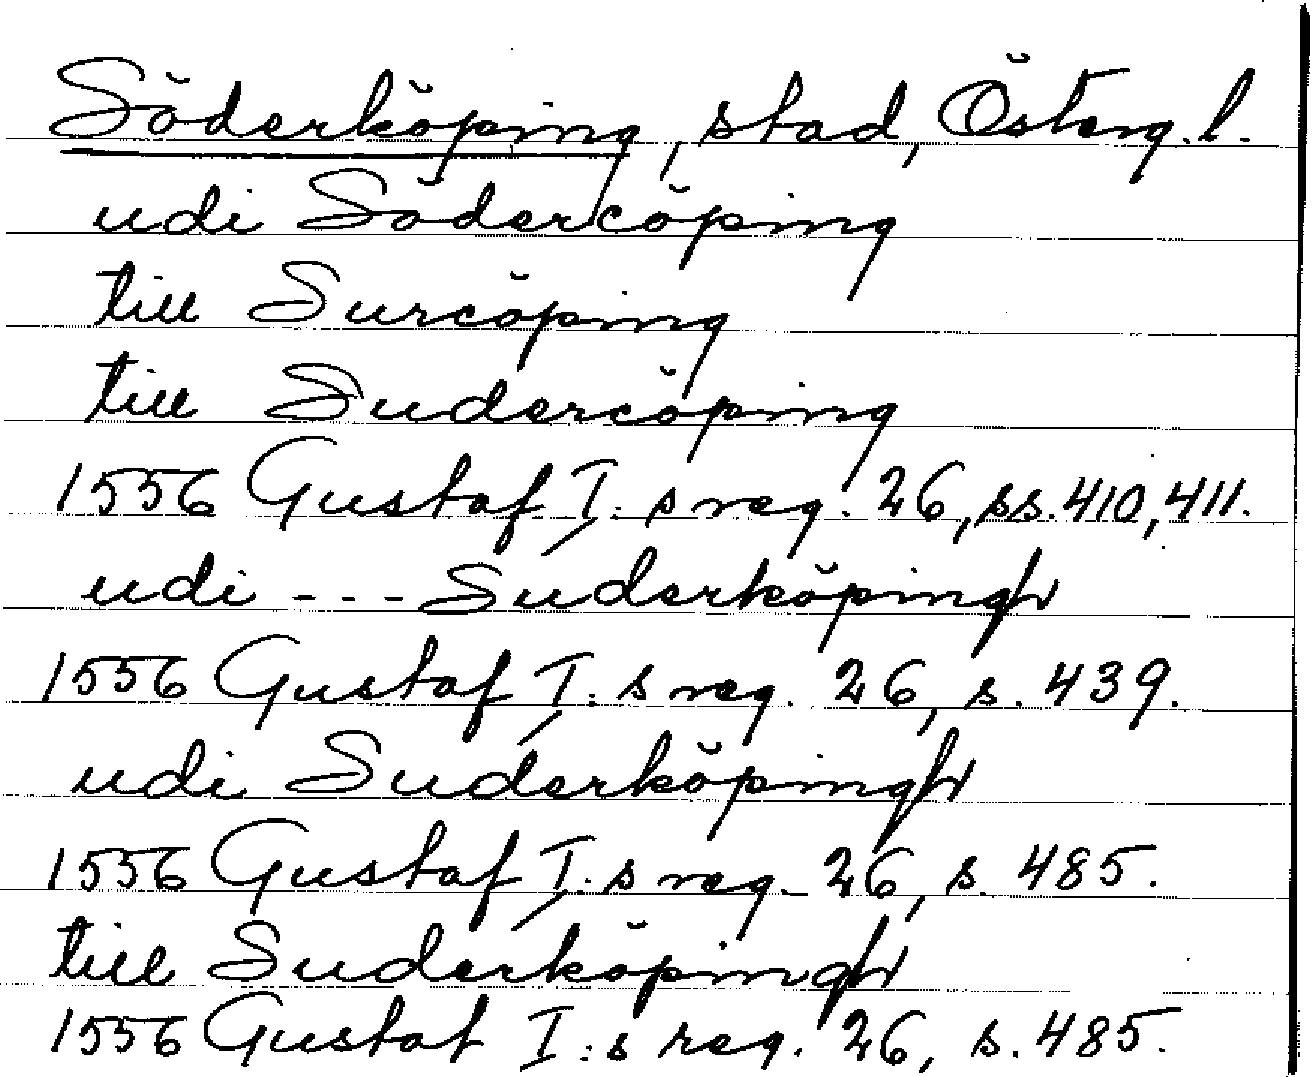 Söderköping, stad, Österg.l.
udi Södercöping
till Surcöping
till Sudercöping
1556 Gustaf I:s reg. 26, ss. 410, 411.
udi --- Suderköpingh
1556 Gustaf I:s reg. 26, s. 439.
udi Suderköpingh
1556 Gustaf I:s reg. 26, s. 485.
till Suderköpingh
1556 Gustaf I:s reg. 26, s. 485.